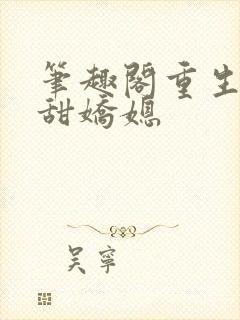 筆趣閣重生
甜嬌媳
吴寧